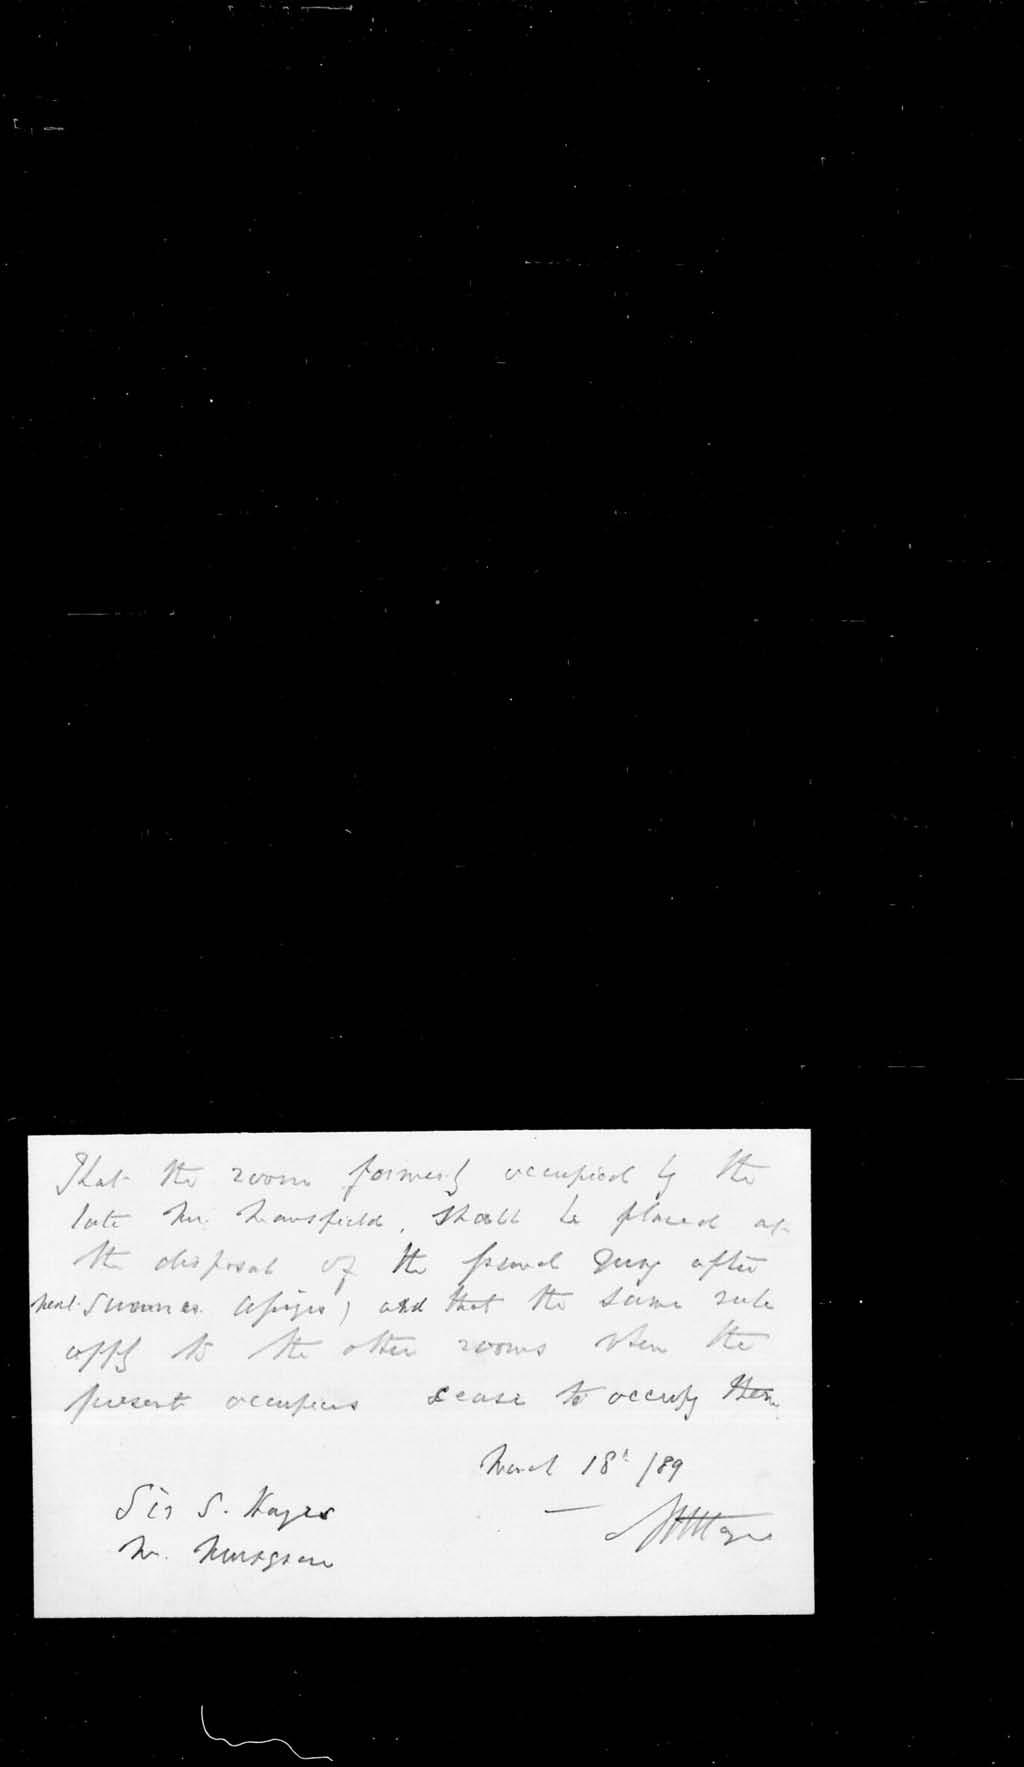 That the room formerly occupied by the
late Mr. Mansfield, shall be placed at
the disposal of the Grand Jury after
next Summer Assizes, and that the same rule
apply to the other rooms when the
present occupiers cease to occupy them
March 18th /89
Sir S. Hayes
Mr. Musgrave